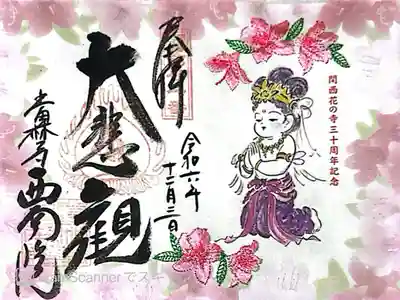 関西花の寺三十周年記念
奉拝
令和六年
十二月三日
大悲観
當麻寺
西南院
CamScannerでスキ